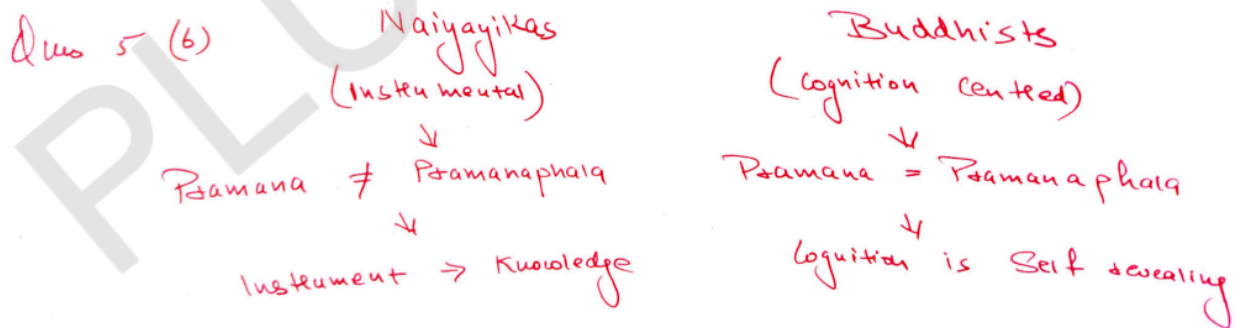 Ques 5 (b)
Naiyayikas
(Instrumental)
↓
Pramana ≠ Pramanaphala
↓
Instrument → Knowledge
Buddhists
(Cognition Centred)
↓
Pramana = Pramanaphala
↓
Cognition is Self revealing